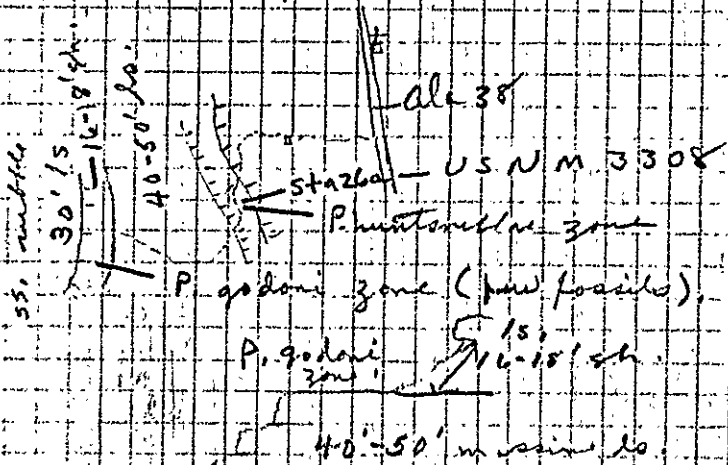 ss. rubble
30' ls
16-18' sh.
40-50' ls.
Ala 38
sta 26a — USNM 3308
P. huntsvillae zone
P. godoni zone (few fossils).
ls.
P. godoni zone
16-18' sh.
40'-50' massive ls.